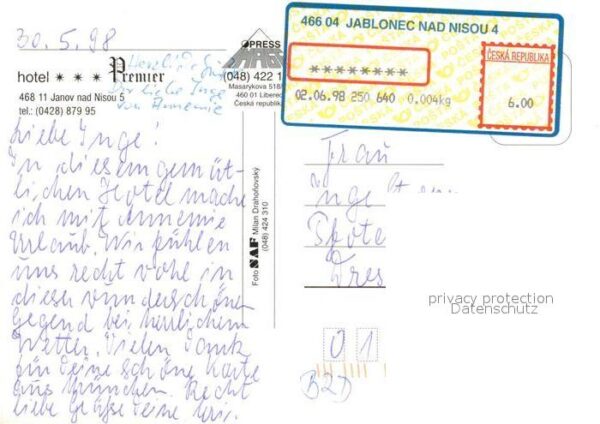 30.5.98
hotel * * * Premier
468 11 Janov nad Nisou 5
tel.: (0428) 879 95
Herzliche
Dir liebe Inge
von Annemie
PRESS
(048) 422 1
Masarykova
460 01 Liberec
Česká republika
466 04 JABLONEC NAD NISOU 4
********
02.06.98 250 640 0.004kg
ČESKÁ REPUBLIKA
6.00
Liebe Inge!
In diesem gemüt-
lichen Hotel mache
ich mit Annemie
Urlaub. Wir fühlen
uns recht wohl in
dieser wunderschönen
Gegend bei herrlichem
Wetter. Vielen Dank
für Deine schöne Karte
aus München. Recht
liebe Grüße Deine
Foto SAF Milan Drahoňovský
(048) 424 310
Frau
Inge
Dres
01
privacy protection
Datenschutz